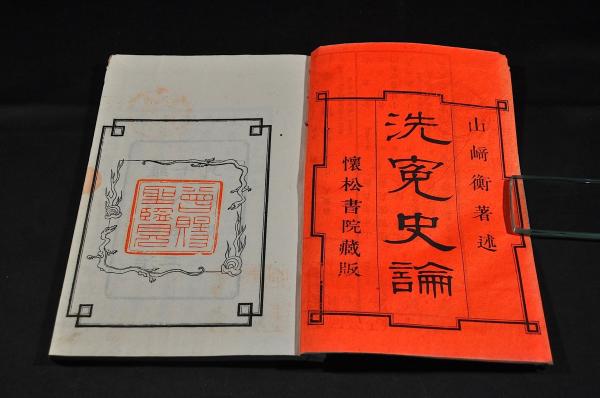 山﨑衡著述
洗寃史論
懷松書院藏版